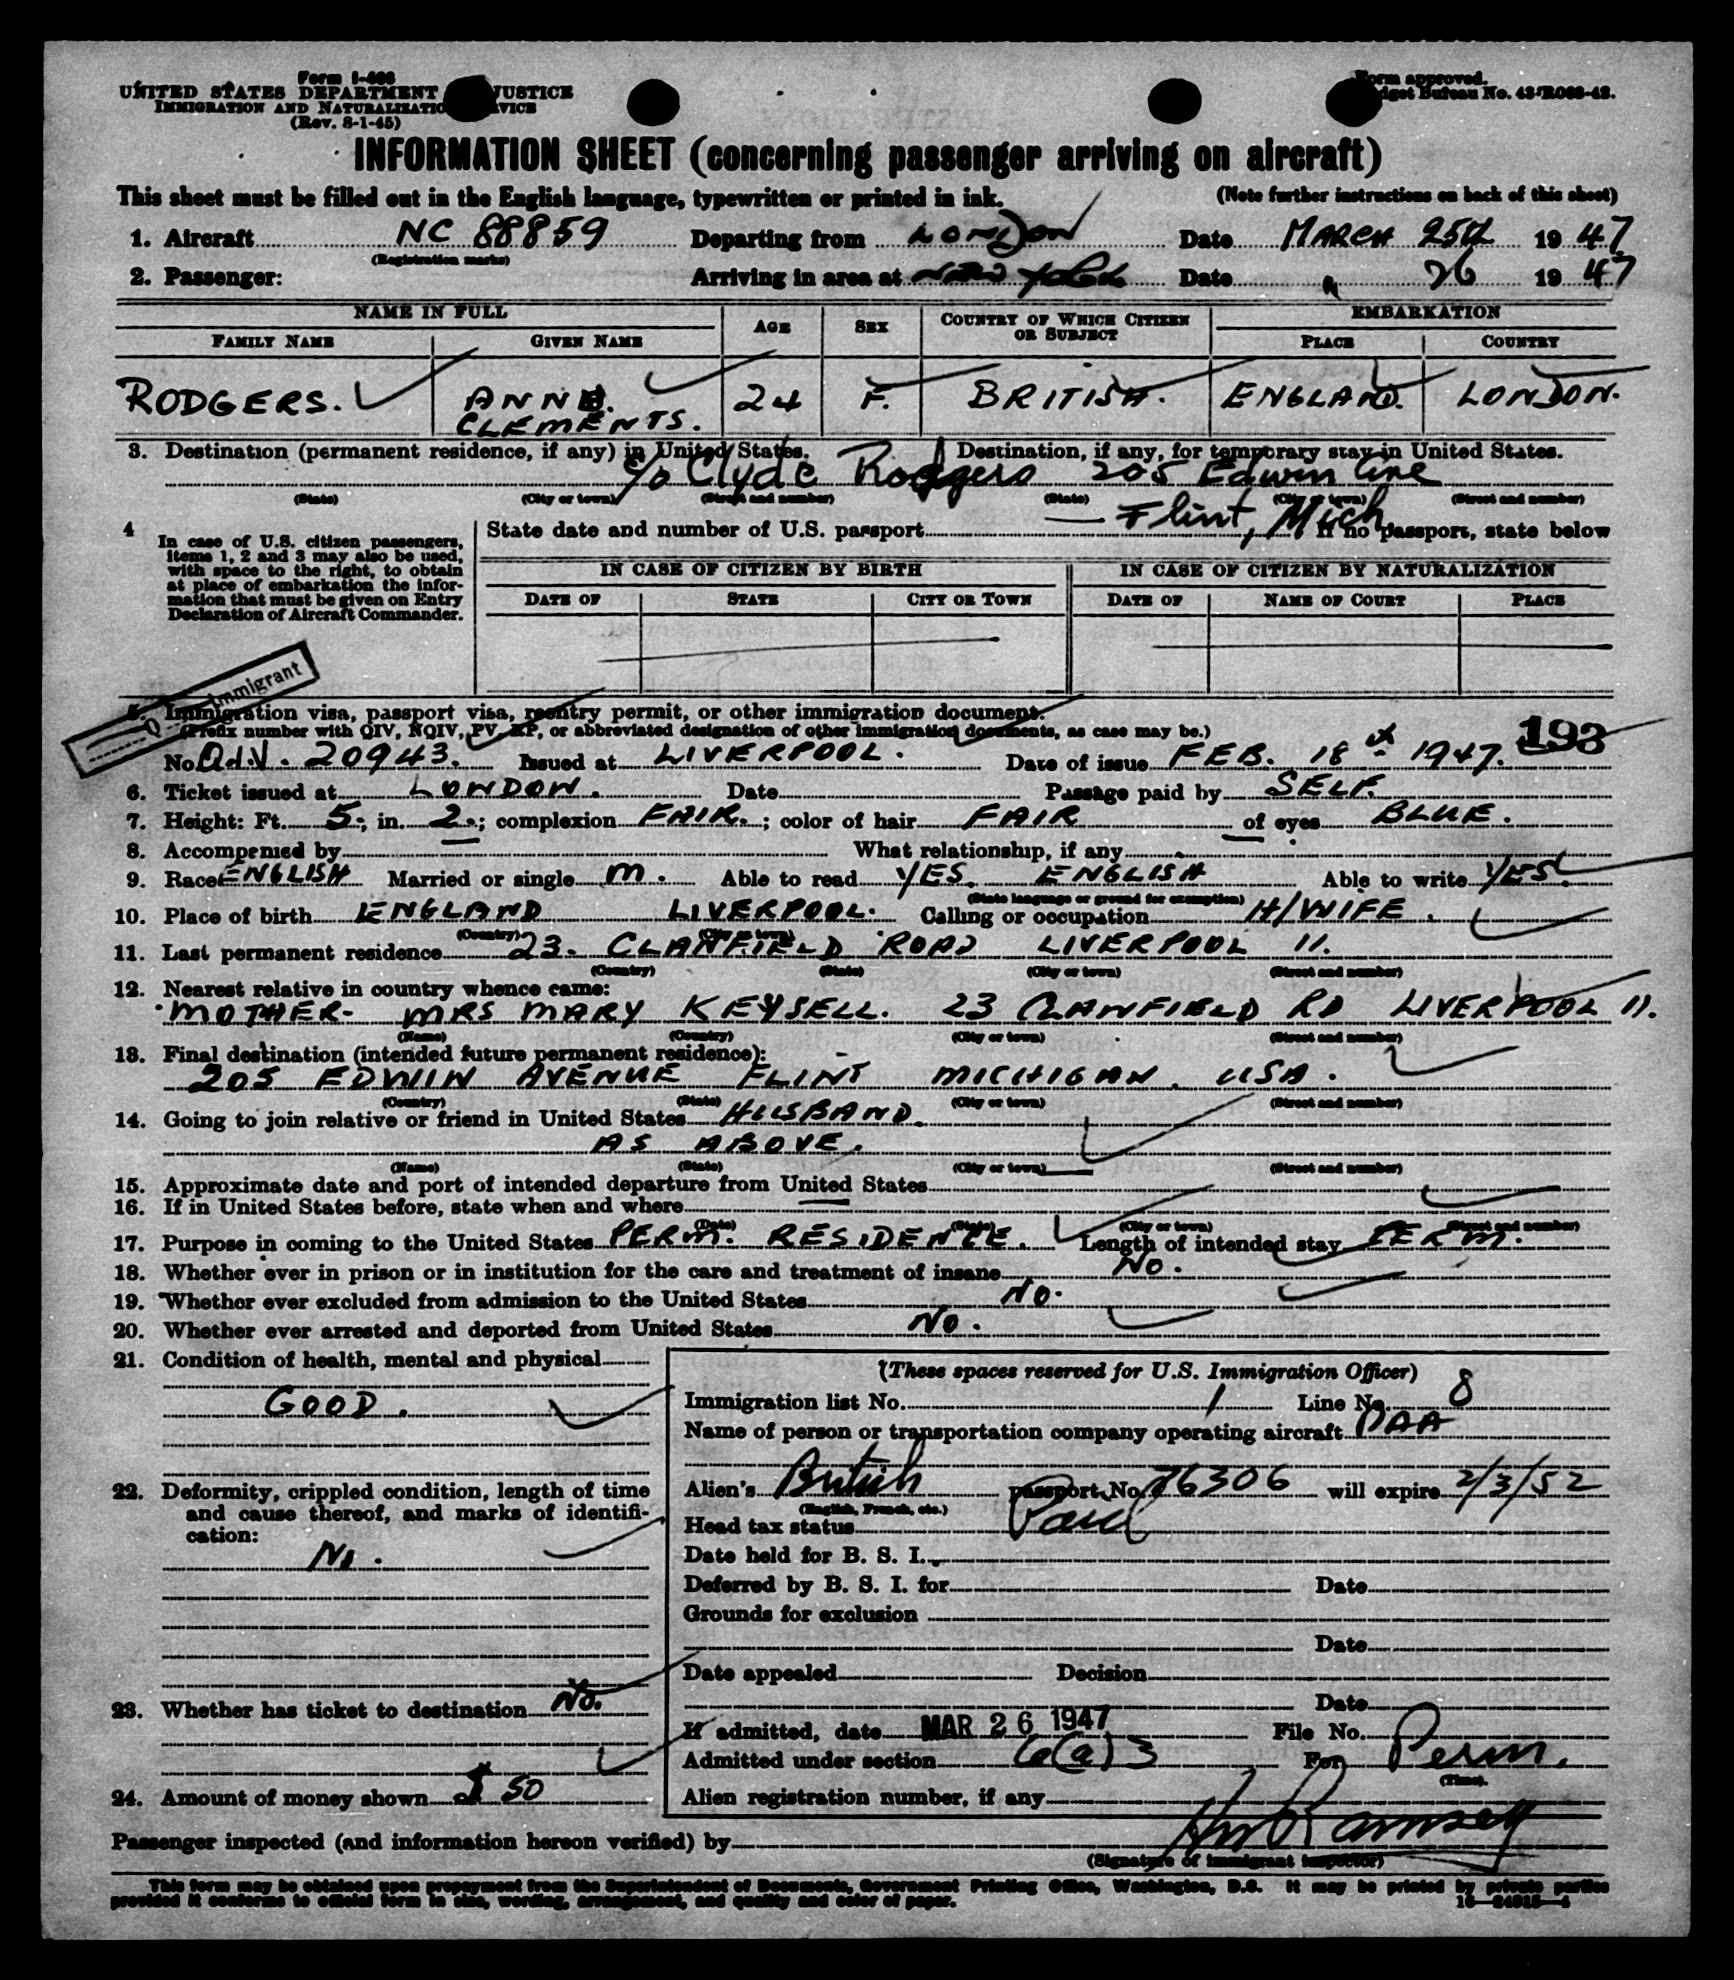 Form I-466
UNITED STATES DEPARTMENT JUSTICE
IMMIGRATION AND NATURALIZATION SERVICE
(Rev. 8-1-45)
Form approved.
Budget Bureau No. 43-R063-42.
INFORMATION SHEET (concerning passenger arriving on aircraft)
This sheet must be filled out in the English language, typewritten or printed in ink. (Note further instructions on back of this sheet)
1. Aircraft NC 88859 Departing from LONDON Date MARCH 25th 19 47
(Registration marks)
2. Passenger: Arriving in area at Date " 26 19 47
NAME IN FULL AGE SEX COUNTRY OF WHICH CITIZEN OR SUBJECT EMBARKATION
FAMILY NAME GIVEN NAME PLACE COUNTRY
RODGERS. ANNE. 24 F. BRITISH. ENGLAND. LONDON.
CLEMENTS.
3. Destination (permanent residence, if any) in United States. Destination, if any, for temporary stay in United States.
c/o Clyde Rodgers 205 Edwin Ave
(State) (City or town) (Street and number) (State) (City or town) (Street and number)
Flint, Mich
4 In case of U.S. citizen passengers, items 1, 2 and 3 may also be used, with space to the right, to obtain at place of embarkation the information that must be given on Entry Declaration of Aircraft Commander.
State date and number of U.S. passport If no passport, state below
IN CASE OF CITIZEN BY BIRTH IN CASE OF CITIZEN BY NATURALIZATION
DATE OF STATE CITY OR TOWN DATE OF NAME OF COURT PLACE
Q Immigrant
5. Immigration visa, passport visa, reentry permit, or other immigration document.
(Prefix number with QIV, NQIV, PV, RP, or abbreviated designation of other immigration documents, as case may be.) 193
No. Q.I.V. 20943. Issued at LIVERPOOL. Date of issue FEB. 18th 1947.
6. Ticket issued at LONDON. Date Passage paid by SELF.
7. Height: Ft. 5; in. 2.; complexion FAIR.; color of hair FAIR of eyes BLUE.
8. Accompanied by What relationship, if any
9. Race ENGLISH Married or single M. Able to read YES. ENGLISH Able to write YES.
(State language or ground for exemption)
10. Place of birth ENGLAND LIVERPOOL. Calling or occupation H/WIFE.
(Country) (City or town)
11. Last permanent residence 23. CLANFIELD ROAD LIVERPOOL 11.
(Country) (State) (City or town) (Street and number)
12. Nearest relative in country whence came:
MOTHER- MRS MARY KEYSELL. 23 CLANFIELD RD LIVERPOOL 11.
(Name) (Country) (City or town) (Street and number)
13. Final destination (intended future permanent residence):
205 EDWIN AVENUE FLINT MICHIGAN. USA.
(Country) (State) (City or town) (Street and number)
14. Going to join relative or friend in United States HUSBAND.
AS ABOVE.
(Name) (State) (City or town) (Street and number)
15. Approximate date and port of intended departure from United States
16. If in United States before, state when and where
(Date) (State) (City or town) (Street and number)
17. Purpose in coming to the United States PERM. RESIDENCE. Length of intended stay PERM.
18. Whether ever in prison or in institution for the care and treatment of insane NO.
19. Whether ever excluded from admission to the United States NO.
20. Whether ever arrested and deported from United States NO.
21. Condition of health, mental and physical
GOOD.
22. Deformity, crippled condition, length of time
and cause thereof, and marks of identifi-
cation:
NO.
23. Whether has ticket to destination NO.
24. Amount of money shown $ 50
(These spaces reserved for U.S. Immigration Officer)
Immigration list No. 1 Line No. 8
Name of person or transportation company operating aircraft PAA
Alien's British passport No. 76306 will expire 2/3/52
(English, French, etc.)
Head tax status Paid
Date held for B. S. I.
Deferred by B. S. I. for Date
Grounds for exclusion
Date
Date appealed Decision
Date
If admitted, date MAR 26 1947 File No.
Admitted under section 6(a)3 For Perm.
(Time).
Alien registration number, if any
Passenger inspected (and information hereon verified) by Ramsey
(Signature of immigrant inspector)
This form may be obtained upon prepayment from the Superintendent of Documents, Government Printing Office, Washington, D.C. It may be printed by private parties
provided it conforms to official form in size, wording, arrangement, and quality and color of paper. 16—24818—4